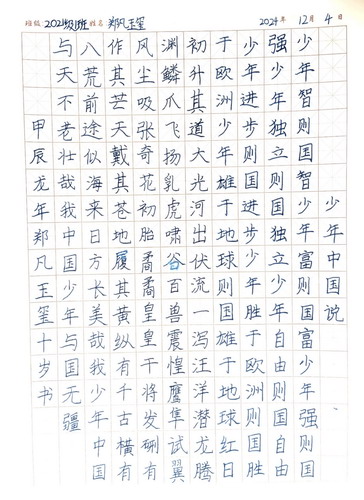 班级 2021级班 姓名 郑凡玉玺 2024年 12月 4日
少年中国说
少年智则国智少年富则国富少年强则国
强少年独立则国独立少年自由则国自由
少年进步则国进步少年胜于欧洲则国胜
于欧洲少年雄于地球则国雄于地球红日
初升其道大光河出伏流一泻汪洋潜龙腾
渊鳞爪飞扬乳虎啸谷百兽震惶鹰隼试翼
风尘吸张奇花初胎矞矞皇皇干将发硎有
作其芒天戴其苍地履其黄纵有千古横有
八荒前途似海来日方长美哉我少年中国
与天不老壮哉我中国少年与国无疆
甲辰龙年郑凡玉玺十岁书